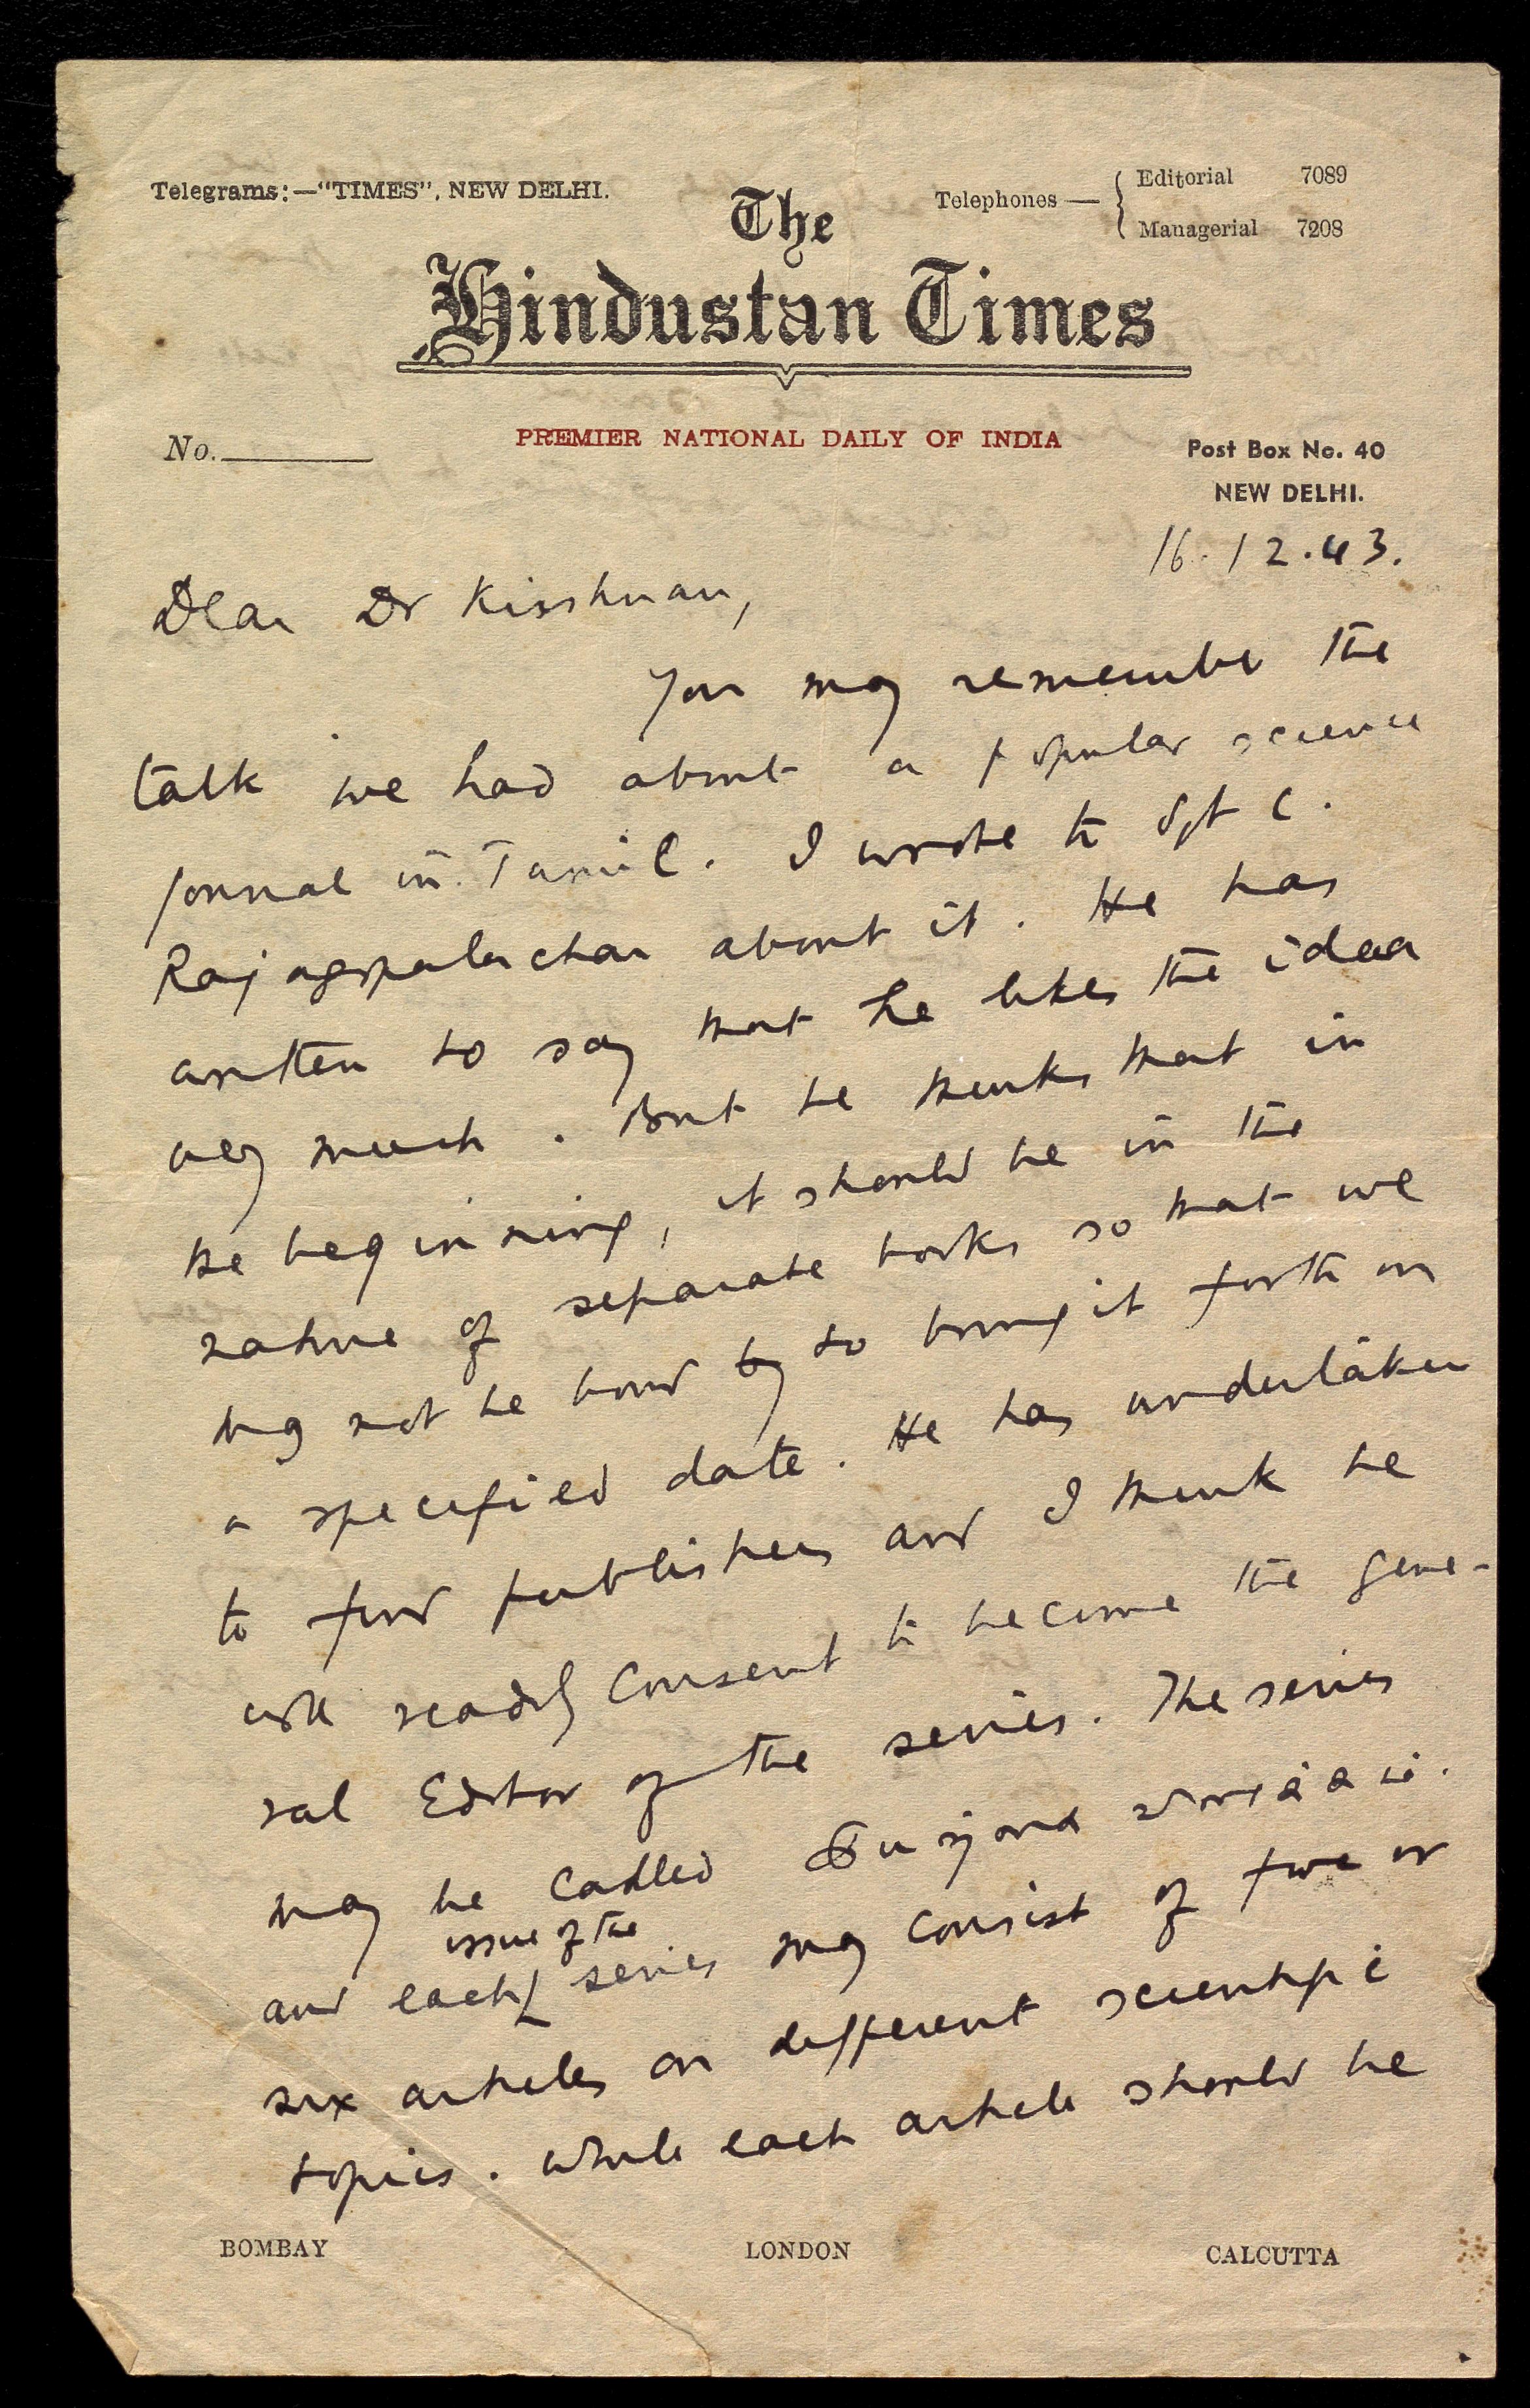 Telegrams:—"TIMES", NEW DELHI.
Telephones — { Editorial 7089
Managerial 7208
The
Hindustan Times
No.
PREMIER NATIONAL DAILY OF INDIA
Post Box No. 40
NEW DELHI.
16.12.43.
Dear Dr Krishnan,
You may remember the
talk we had about a popular science
journal in Tamil. I wrote to Sjt C.
Rajagopalachari about it. He has
written to say that he likes the idea
very much. But he thinks that in
the beginning, it should be in the
nature of separate books so that we
may not be bound by to bring it forth on
a specified date. He has undertaken
to find publishers and I think he
will readily consent to become the gene-
ral Editor of the series. The series
may be called
and each issue of the series may consist of five or
six articles on different scientific
topics. While each article should be
BOMBAY
LONDON
CALCUTTA